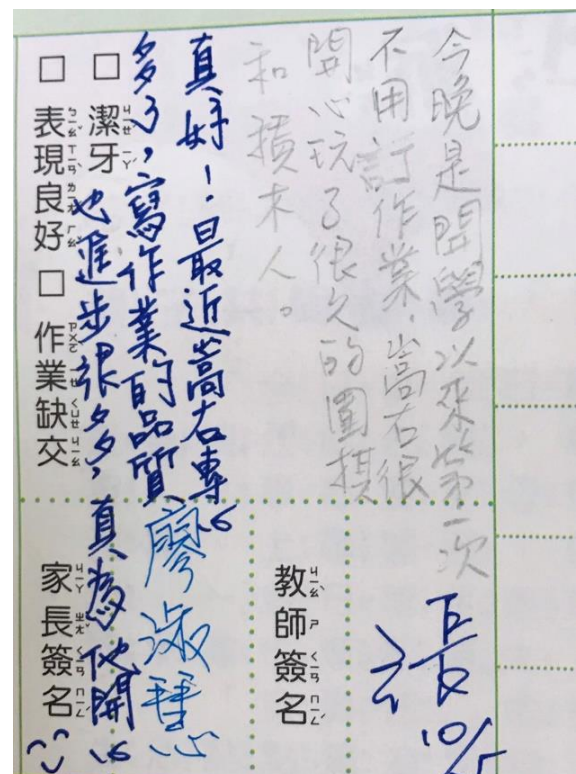 今晚是開學以來第一次
不用訂作業,嵩右很
開心玩了很久的圍棋
和積木人。
真好!最近嵩右專心
多了,寫作業的品質
也進步很多,真為他開心
□ 潔牙
□ 表現良好 □ 作業缺交
教師簽名
張
10/5
家長簽名
廖淑慧